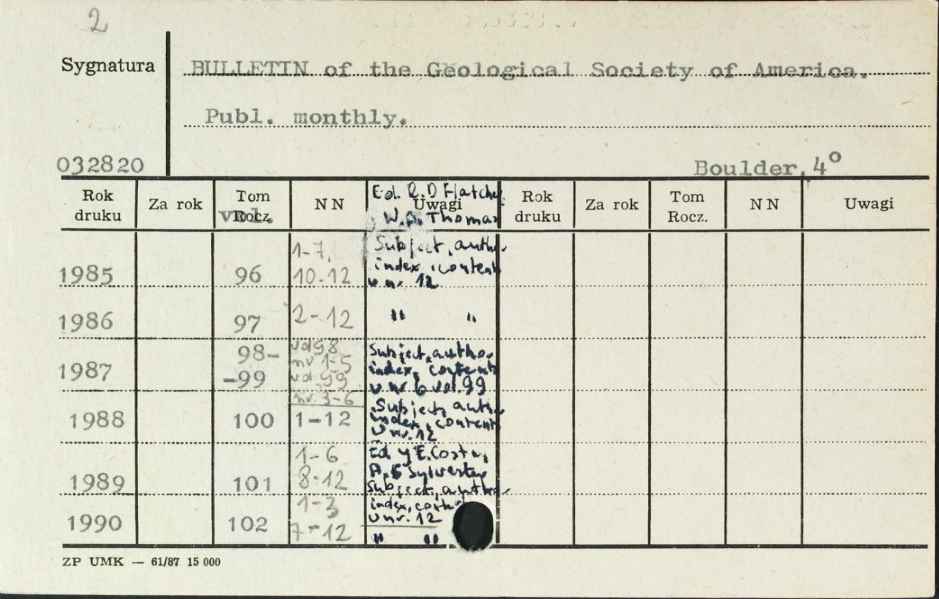 2
Sygnatura
BULLETIN of the Geological Society of America.
Publ. monthly.
032820
Boulder, 4°
Rok druku Za rok Tom Rocz. vol. NN Uwagi Rok druku Za rok Tom Rocz. NN Uwagi
Ed. R.D Hatcher
W.A. Thomas
1985 96 1-7, 10-12 Subject, author index, content w nr. 12
1986 97 2-12 " "
1987 98-99 vol 98 nr 1-5 vol. 99 nr. 3-6 Subject, author index, content w nr 6 vol 99
1988 100 1-12 Subject, author index, content w nr. 12
1989 101 1-6 8-12 Ed J E. Costa, A.G Sylvester Subject, author index, content w nr. 12
1990 102 1-3 7-12 " "
ZP UMK — 61/87 15 000